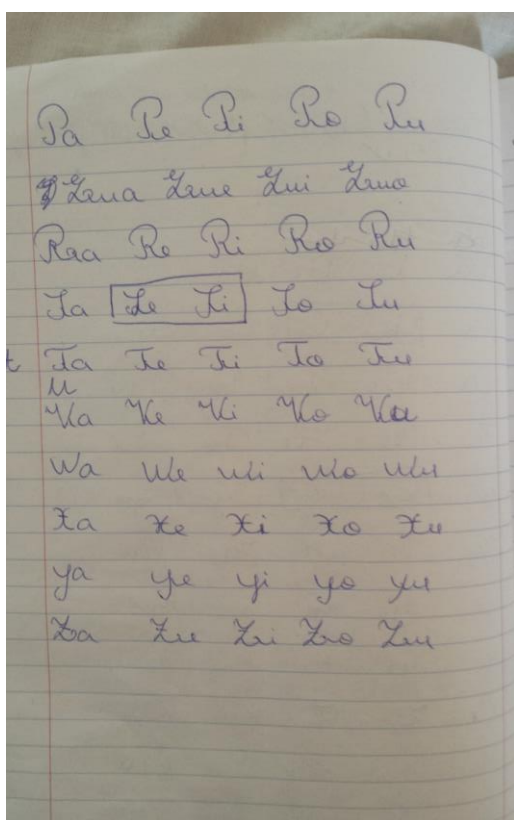 Pa Pe Pi Po Pu
Raa Re Ri Ro Ru
Sa Se Si So Su
t Ta Te Ti To Tu
Va Ve Vi Vo Vu
Wa We Wi Wo Wu
Xa Xe Xi Xo Xu
ya ye yi yo yu
Za Ze Zi Zo Zu